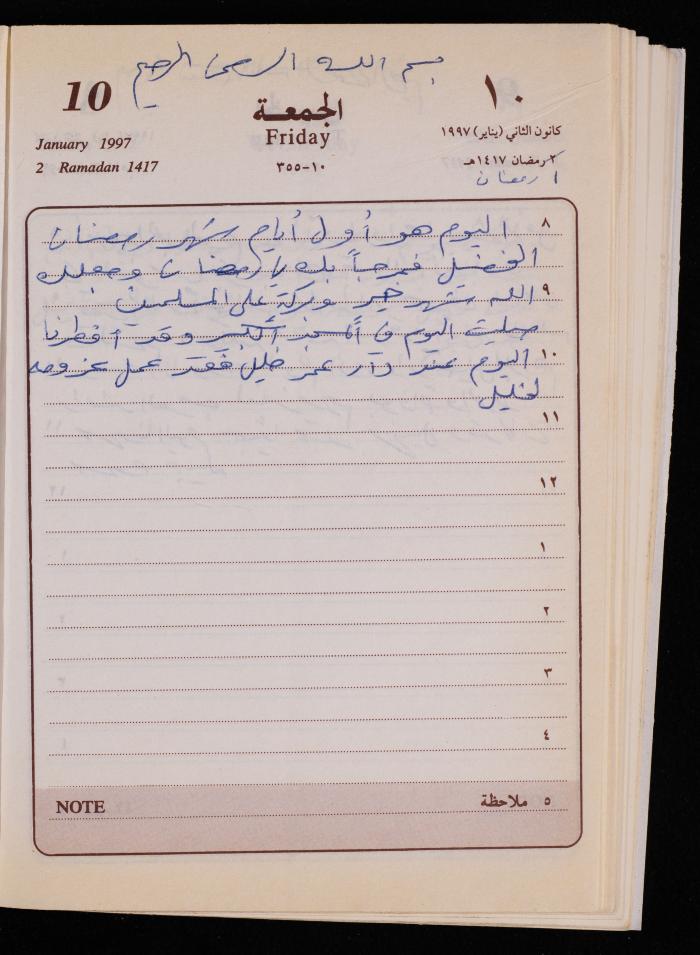 بسم الله الرحمن الرحيم
10 الجمعة ١٠
Friday
January 1997 كانون الثاني (يناير) ١٩٩٧
2 Ramadan 1417 ١٠-٣٥٥ ٢ رمضان ١٤١٧هـ
١ رمضان
٨ اليوم هو أول أيام شهر رمضان
الفضيل فمرحباً بك يا رمضان وجعلك
٩ الله شهر خير وبركة على المسلمين
صليت اليوم في المسجد الكبير وقد أفطرنا
١٠ اليوم عند دار عمر خليل فقد عمل عزومه
لخليل
١١
١٢
١
٢
٣
٤
NOTE ٥ ملاحظة